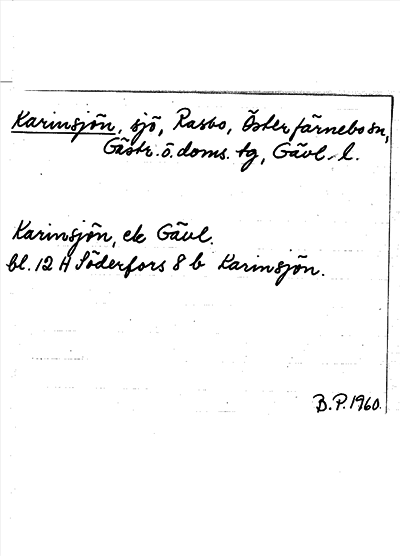 Karinsjön, sjö, Rasbo, Österfärnebo sn,
Gästr. ö. doms. tg, Gävl. l.
Karinsjön, ek Gävl.
bl. 12 H Söderfors 8 b Karinsjön.
B.P. 1960.